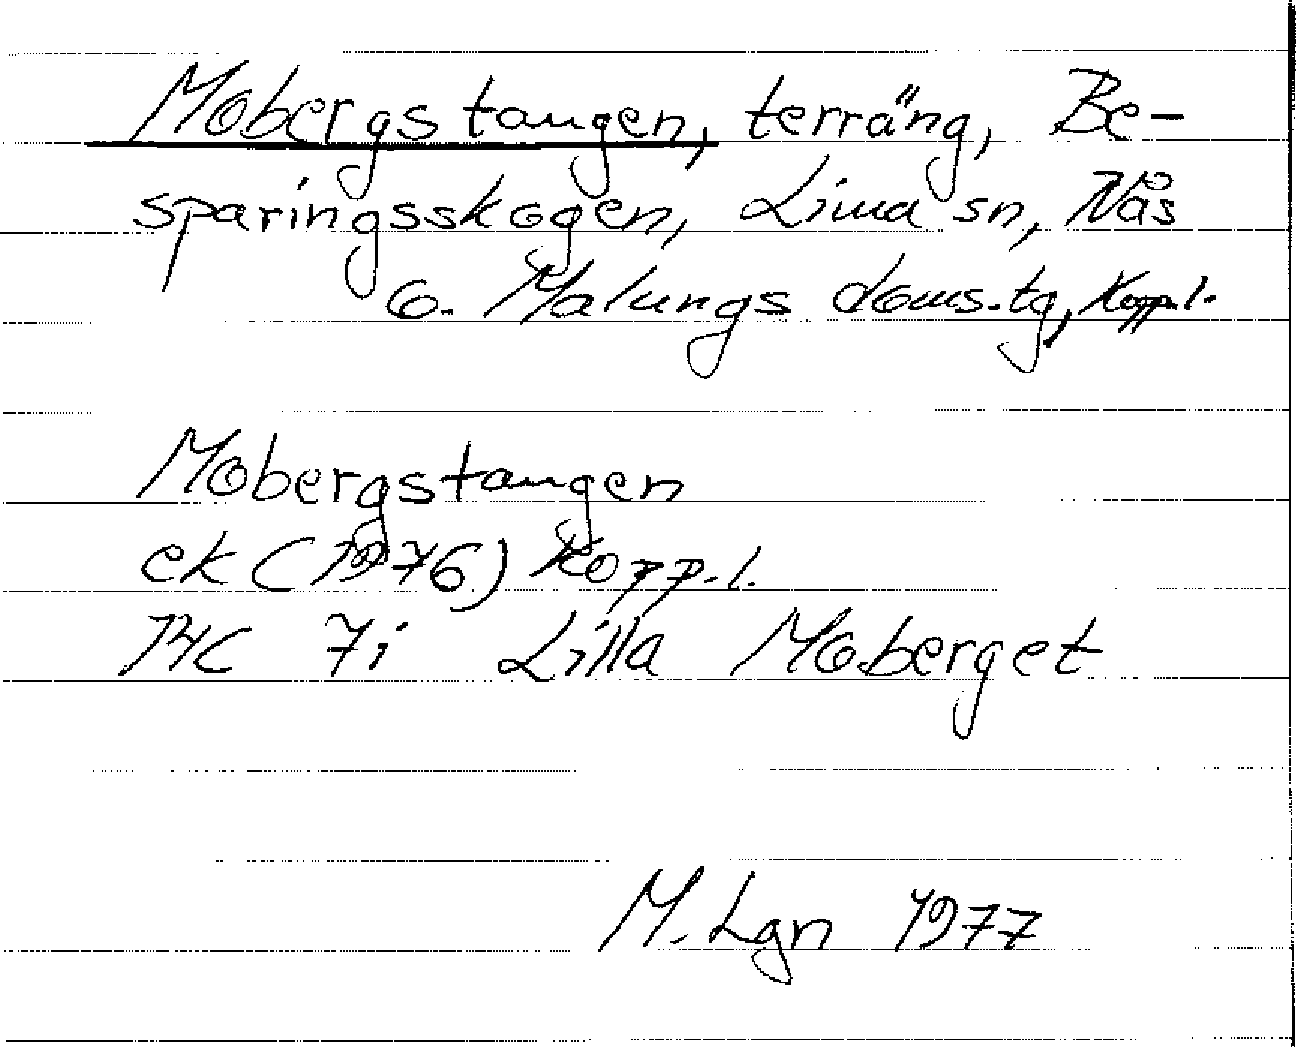 Mobergstangen, terräng, Be-
sparingsskogen, Lima sn, Nås
o. Malungs doms.tg, Kopp.l.
Mobergstangen
ek (1976) Kopp.l.
14C 7i Lilla Moberget
M. Lgn 1977